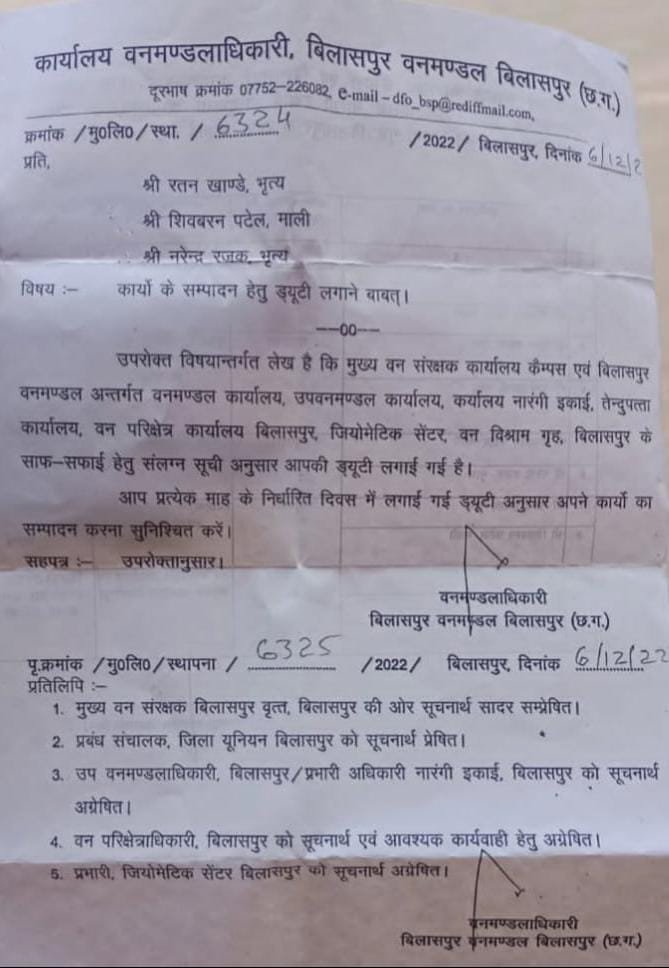 कार्यालय वनमण्डलाधिकारी, बिलासपुर वनमण्डल बिलासपुर (छ.ग.)
दूरभाष क्रमांक 07752-226082, e-mail - dfo_bsp@rediffmail.com,
क्रमांक /मु0लि0/स्था. / 6324 /2022/ बिलासपुर, दिनांक 6/12/2
प्रति,
श्री रतन खाण्डे, भृत्य
श्री शिवबरन पटेल, माली
श्री नरेन्द्र रजक, भृत्य
विषय :- कार्यो के सम्पादन हेतु ड्यूटी लगाने बाबत्।
--00--
उपरोक्त विषयान्तर्गत लेख है कि मुख्य वन संरक्षक कार्यालय कैम्पस एवं बिलासपुर
वनमण्डल अन्तर्गत वनमण्डल कार्यालय, उपवनमण्डल कार्यालय, कर्यालय नारंगी इकाई, तेन्दुपत्ता
कार्यालय, वन परिक्षेत्र कार्यालय बिलासपुर, जियोमेटिक सेंटर, वन विश्राम गृह, बिलासपुर के
साफ-सफाई हेतु संलग्न सूची अनुसार आपकी ड्यूटी लगाई गई है।
आप प्रत्येक माह के निर्धारित दिवस में लगाई गई ड्यूटी अनुसार अपने कार्यो का
सम्पादन करना सुनिश्चित करें।
सहपत्र :- उपरोक्तानुसार।
वनमण्डलाधिकारी
बिलासपुर वनमण्डल बिलासपुर (छ.ग.)
पृ.क्रमांक /मु0लि0/स्थापना / 6325 /2022/ बिलासपुर, दिनांक 6/12/22
प्रतिलिपि :-
1. मुख्य वन संरक्षक बिलासपुर वृत्त, बिलासपुर की ओर सूचनार्थ सादर सम्प्रेषित।
2. प्रबंध संचालक, जिला यूनियन बिलासपुर को सूचनार्थ प्रेषित।
3. उप वनमण्डलाधिकारी, बिलासपुर/प्रभारी अधिकारी नारंगी इकाई, बिलासपुर को सूचनार्थ
अग्रेषित।
4. वन परिक्षेत्राधिकारी, बिलासपुर को सूचनार्थ एवं आवश्यक कार्यवाही हेतु अग्रेषित।
5. प्रभारी, जियोमेटिक सेंटर बिलासपुर को सूचनार्थ अग्रेषित।
वनमण्डलाधिकारी
बिलासपुर वनमण्डल बिलासपुर (छ.ग.)